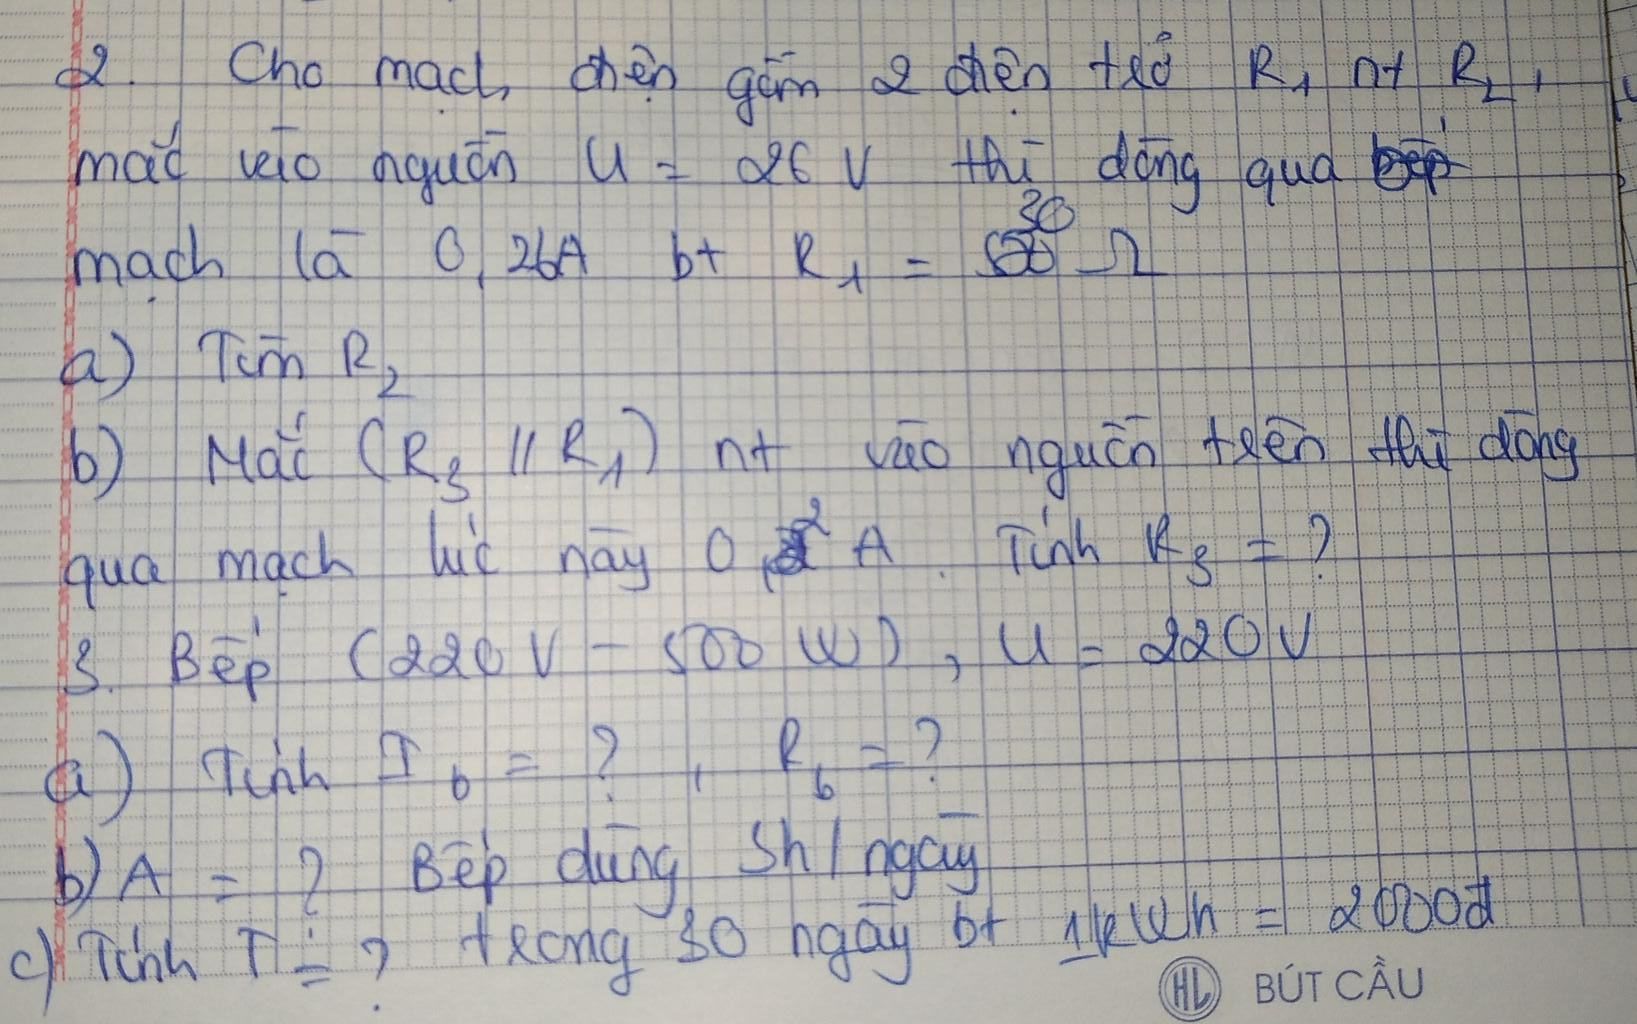 2. Cho mạch điện gồm 2 điện trở R₁ nt R₂,
mắc vào nguồn U = 26 V thì dòng qua
mạch là 0,26A bt R₁ = 30 Ω
a) Tìm R₂
b) Mắc (R₃ // R₁) nt vào nguồn trên thì dòng
qua mạch lúc này 0,2 A. Tính R₃ = ?
3. Bếp (220V - 500 W), U = 220V
a) Tính I b = ?, R b = ?
b) A = ? Bếp dùng 5h/ngày
c) Tính T = ? trong 30 ngày bt 1kWh = 2000đ
HL BÚT CẦU